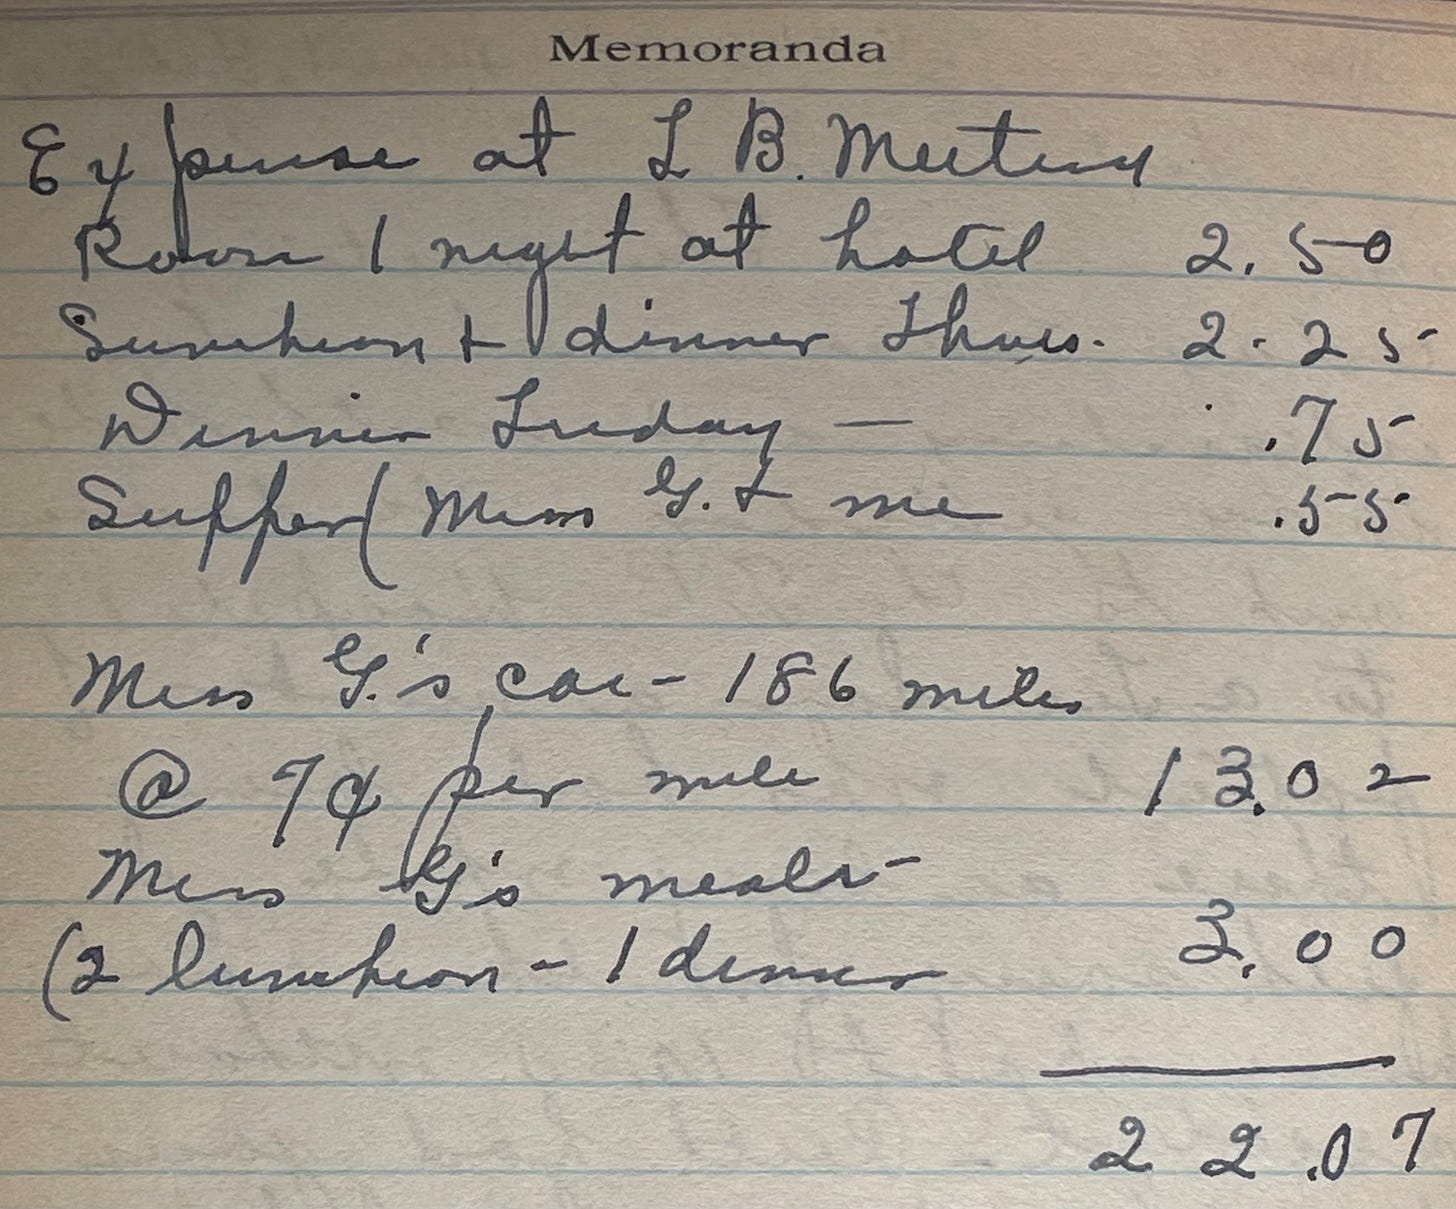 Memoranda
Expense at L B. Meeting
Room 1 night at hotel 2.50
Luncheon + dinner Thurs. 2.25
Dinner Friday — .75
Supper (Miss G. + me .55
Miss G.'s car - 186 miles
@ 7¢ per mile 13.02
Miss G's meals -
(2 luncheon - 1 dinner 3.00
22.07